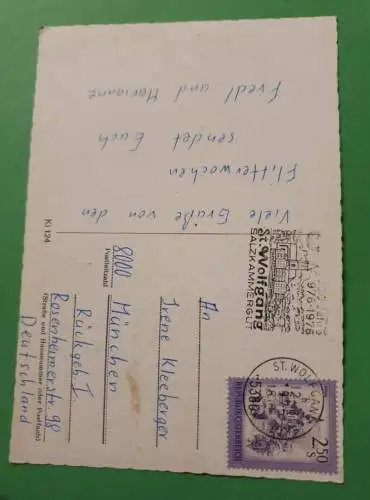 Viele Grüße von den
Flitterwochen
sendet Euch
Fredl und Marianne
KI 124
St. Wolfgang
SALZKAMMERGUT
976-1976
ST. WOLFGANG
5360
2.50
S
REPUBLIK ÖSTERREICH
An
Irene Kleeberger
8000 München
Postleitzahl
Rückgeb. I.
Rosenheimerstr. 98
(Straße und Hausnummer oder Postfach)
Deutschland